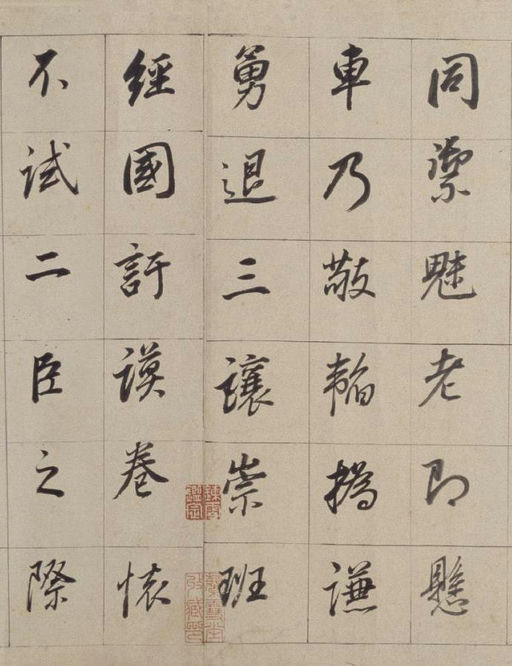 同禦魅老即懸
車乃敬韜撝謙
勇退三讓崇班
經國訏謨卷懷
不試二臣之際